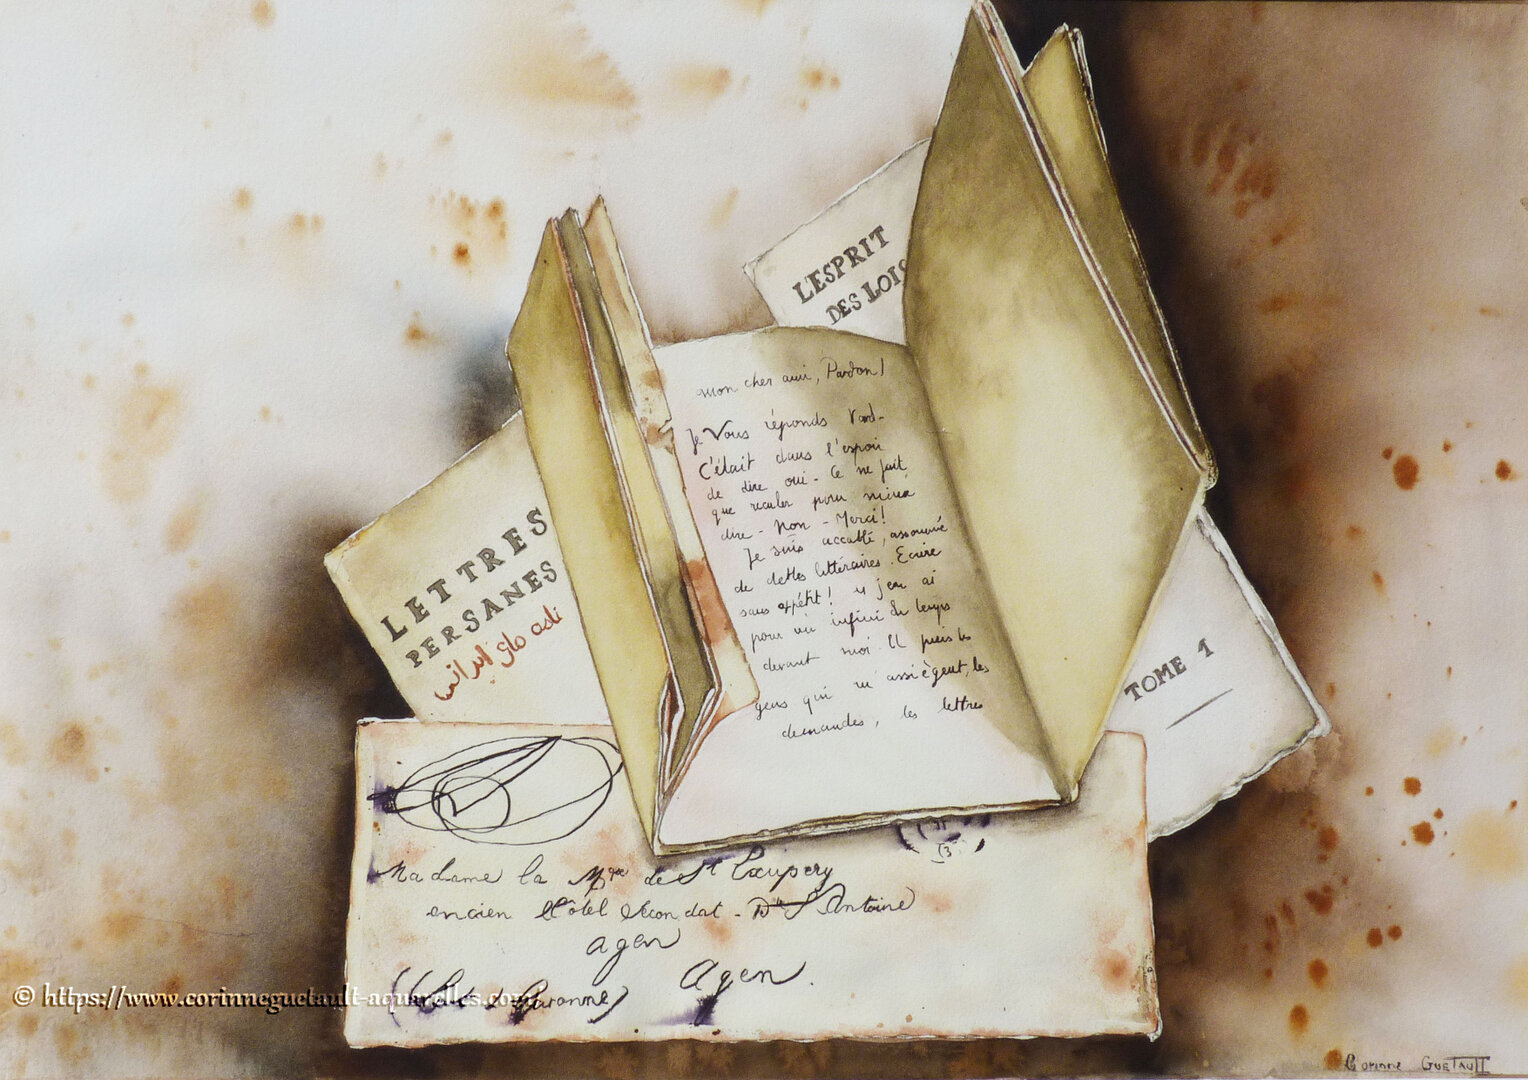 L'ESPRIT
DES LOIS
mon cher ami, Pardon!
Je Vous réponds tard-
C'était dans l'espoir
de dire oui - Ce ne fait
que reculer pour mieux
dire - Non - Merci!
Je suis accablé, assommé
de dettes littéraires. Ecrire
sans appétit! u j'en ai
pour un infini du temps
devant moi - Et puis les
gens qui m'assiègent, les
demandes, les lettres
LETTRES
PERSANES
نامه های ایرانی
TOME 1
(3
Madame la Mise de St Exupery
ancien Hôtel Secondat - St Antoine
agen
Agen.
(Lot de Garonne)
© https://www.corinneguetault-aquarelles.com/
Corinne GUETAULT